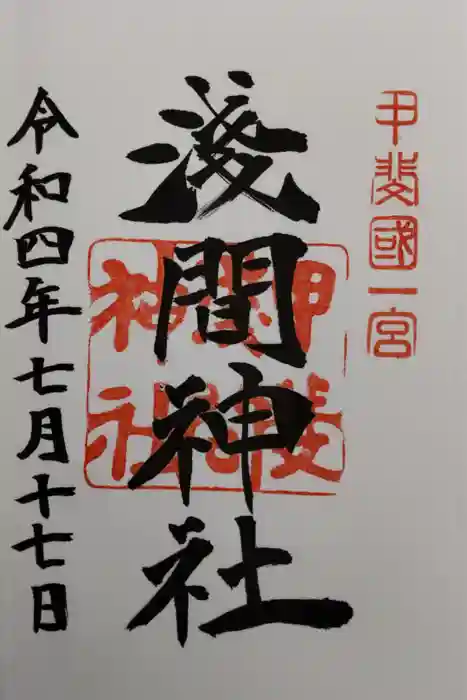 甲斐國一宮
淺間神社
甲斐
神社
令和四年七月十七日